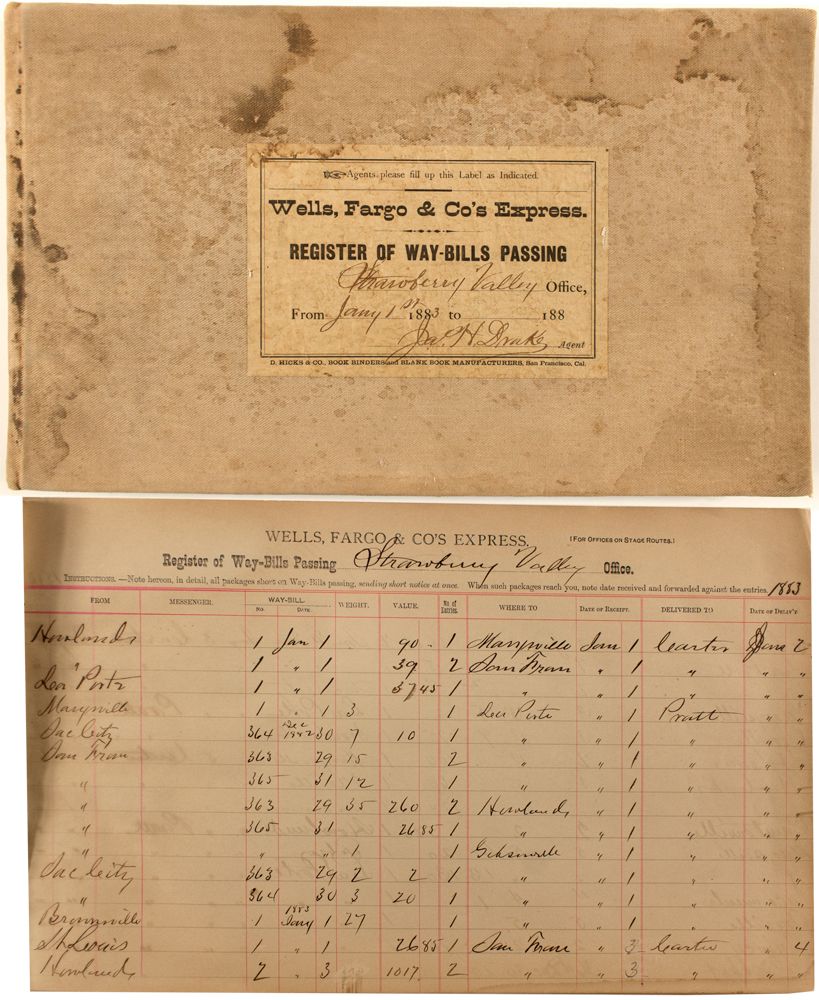 Agents please fill up this Label as Indicated.
Wells, Fargo & Co's Express.
REGISTER OF WAY-BILLS PASSING
Strawberry Valley Office,
From Jany 1st 1883 to 188
Jas. H. Drake Agent
D. HICKS & CO., BOOK BINDERS and BLANK BOOK MANUFACTURERS, San Francisco, Cal.
WELLS, FARGO & CO'S EXPRESS. [FOR OFFICES ON STAGE ROUTES.]
Register of Way-Bills Passing Strawberry Valley Office.
INSTRUCTIONS.—Note hereon, in detail, all packages short on Way-Bills passing, sending short notice at once. When such packages reach you, note date received and forwarded against the entries. 1883
FROM MESSENGER. WAY-BILL. No. DATE. WEIGHT. VALUE. No of Entries. WHERE TO DATE OF RECEIPT. DELIVERED TO DATE OF DELIV'Y
Howlands 1 Jan 1 90 - 1 Marysville Jan 1 Carter Jan 2
" 1 " 1 39 2 San Fran " 1 " " "
Laa Porte 1 " 1 37 45 1 " " 1 " " "
Marysville 1 " 1 3 1 Laa Porte " 1 Pratt " "
Sac City 364 Dec 1882 30 7 10 1 " " 1 " " "
San Fran 363 29 15 2 " " 1 " " "
" 365 31 12 1 " " 1 " " "
" 363 29 35 260 2 Howlands " 1 " " "
" 365 31 26 85 1 " " 1 " " "
" " " 1 1 Gibsonville " 1 " " "
Sac City 363 29 2 2 1 " " 1 " " "
" 364 30 3 20 1 " " 1 " " "
Brownville 1 1883 Jany 1 27 1 " " 1 " " "
St Louis 1 " 1 26 85 1 San Fran " 3 Carter " 4
Howlands 2 " 3 1017 2 " " 3 " " "